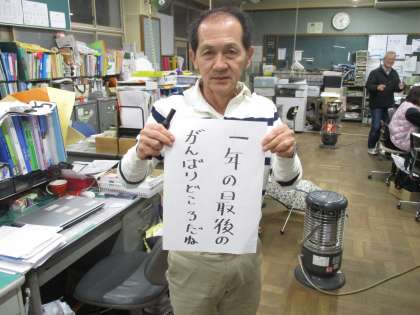 一年の最後の
がんばりどころだね